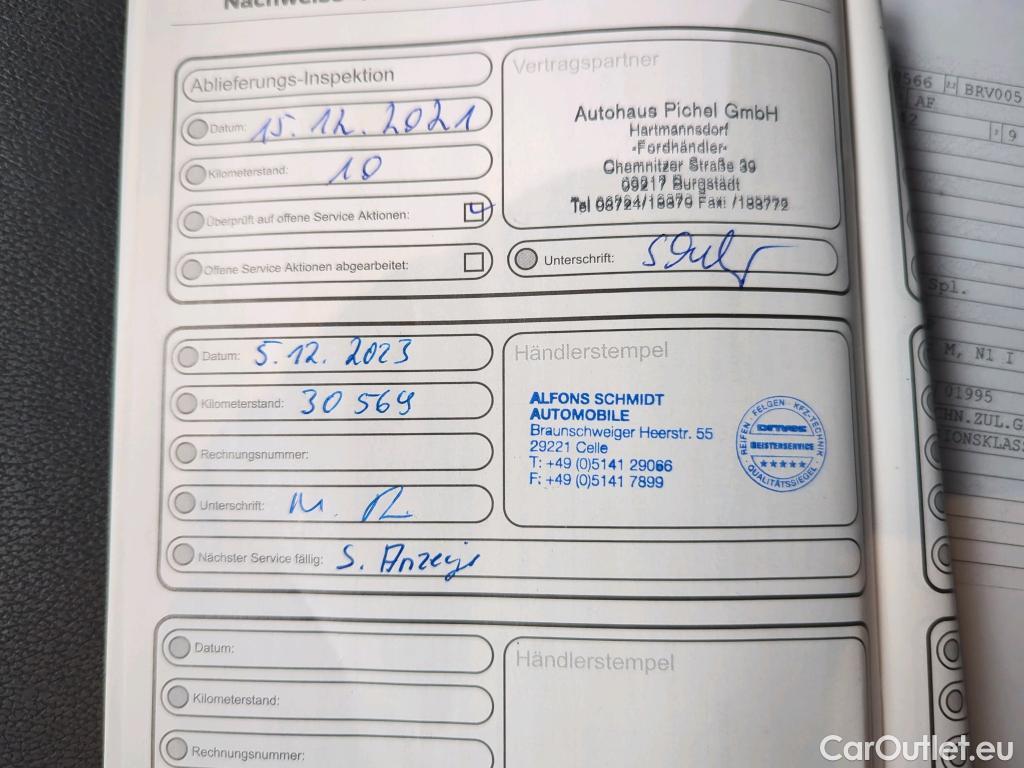 Ablieferungs-Inspektion
Datum: 15.12.2021
Kilometerstand: 10
Überprüft auf offene Service Aktionen:
Offene Service Aktionen abgearbeitet:
Vertragspartner
Autohaus Pichel GmbH
Hartmannsdorf
-Fordhändler-
Chemnitzer Straße 39
09217 Burgstädt
Unterschrift:
Datum: 5.12.2023
Kilometerstand: 30569
Rechnungsnummer:
Unterschrift:
Nächster Service fällig: S. Anzeige
Händlerstempel
ALFONS SCHMIDT
AUTOMOBILE
Braunschweiger Heerstr. 55
29221 Celle
T: +49 (0)5141 29066
F: +49 (0)5141 7899
REIFEN · FELGEN · KFZ-TECHNIK
MEISTERSERVICE
QUALITÄTSSIEGEL
Datum:
Kilometerstand:
Rechnungsnummer:
Händlerstempel
566 BRV005
AF
9
Spl.
M, N1 I
01995
HN.ZUL.G
IONSKLAS
CarOutlet.eu